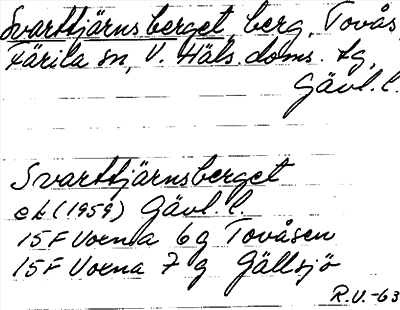 Svarttjärnsberget, berg, Tovås,
Färila sn, V. Häls. doms. tg,
Gävl. l.
Svarttjärnsberget
ek (1959) Gävl. l.
15F Voxna 6g Tovåsen
15F Voxna 7g Gällsjö
R.V.-63